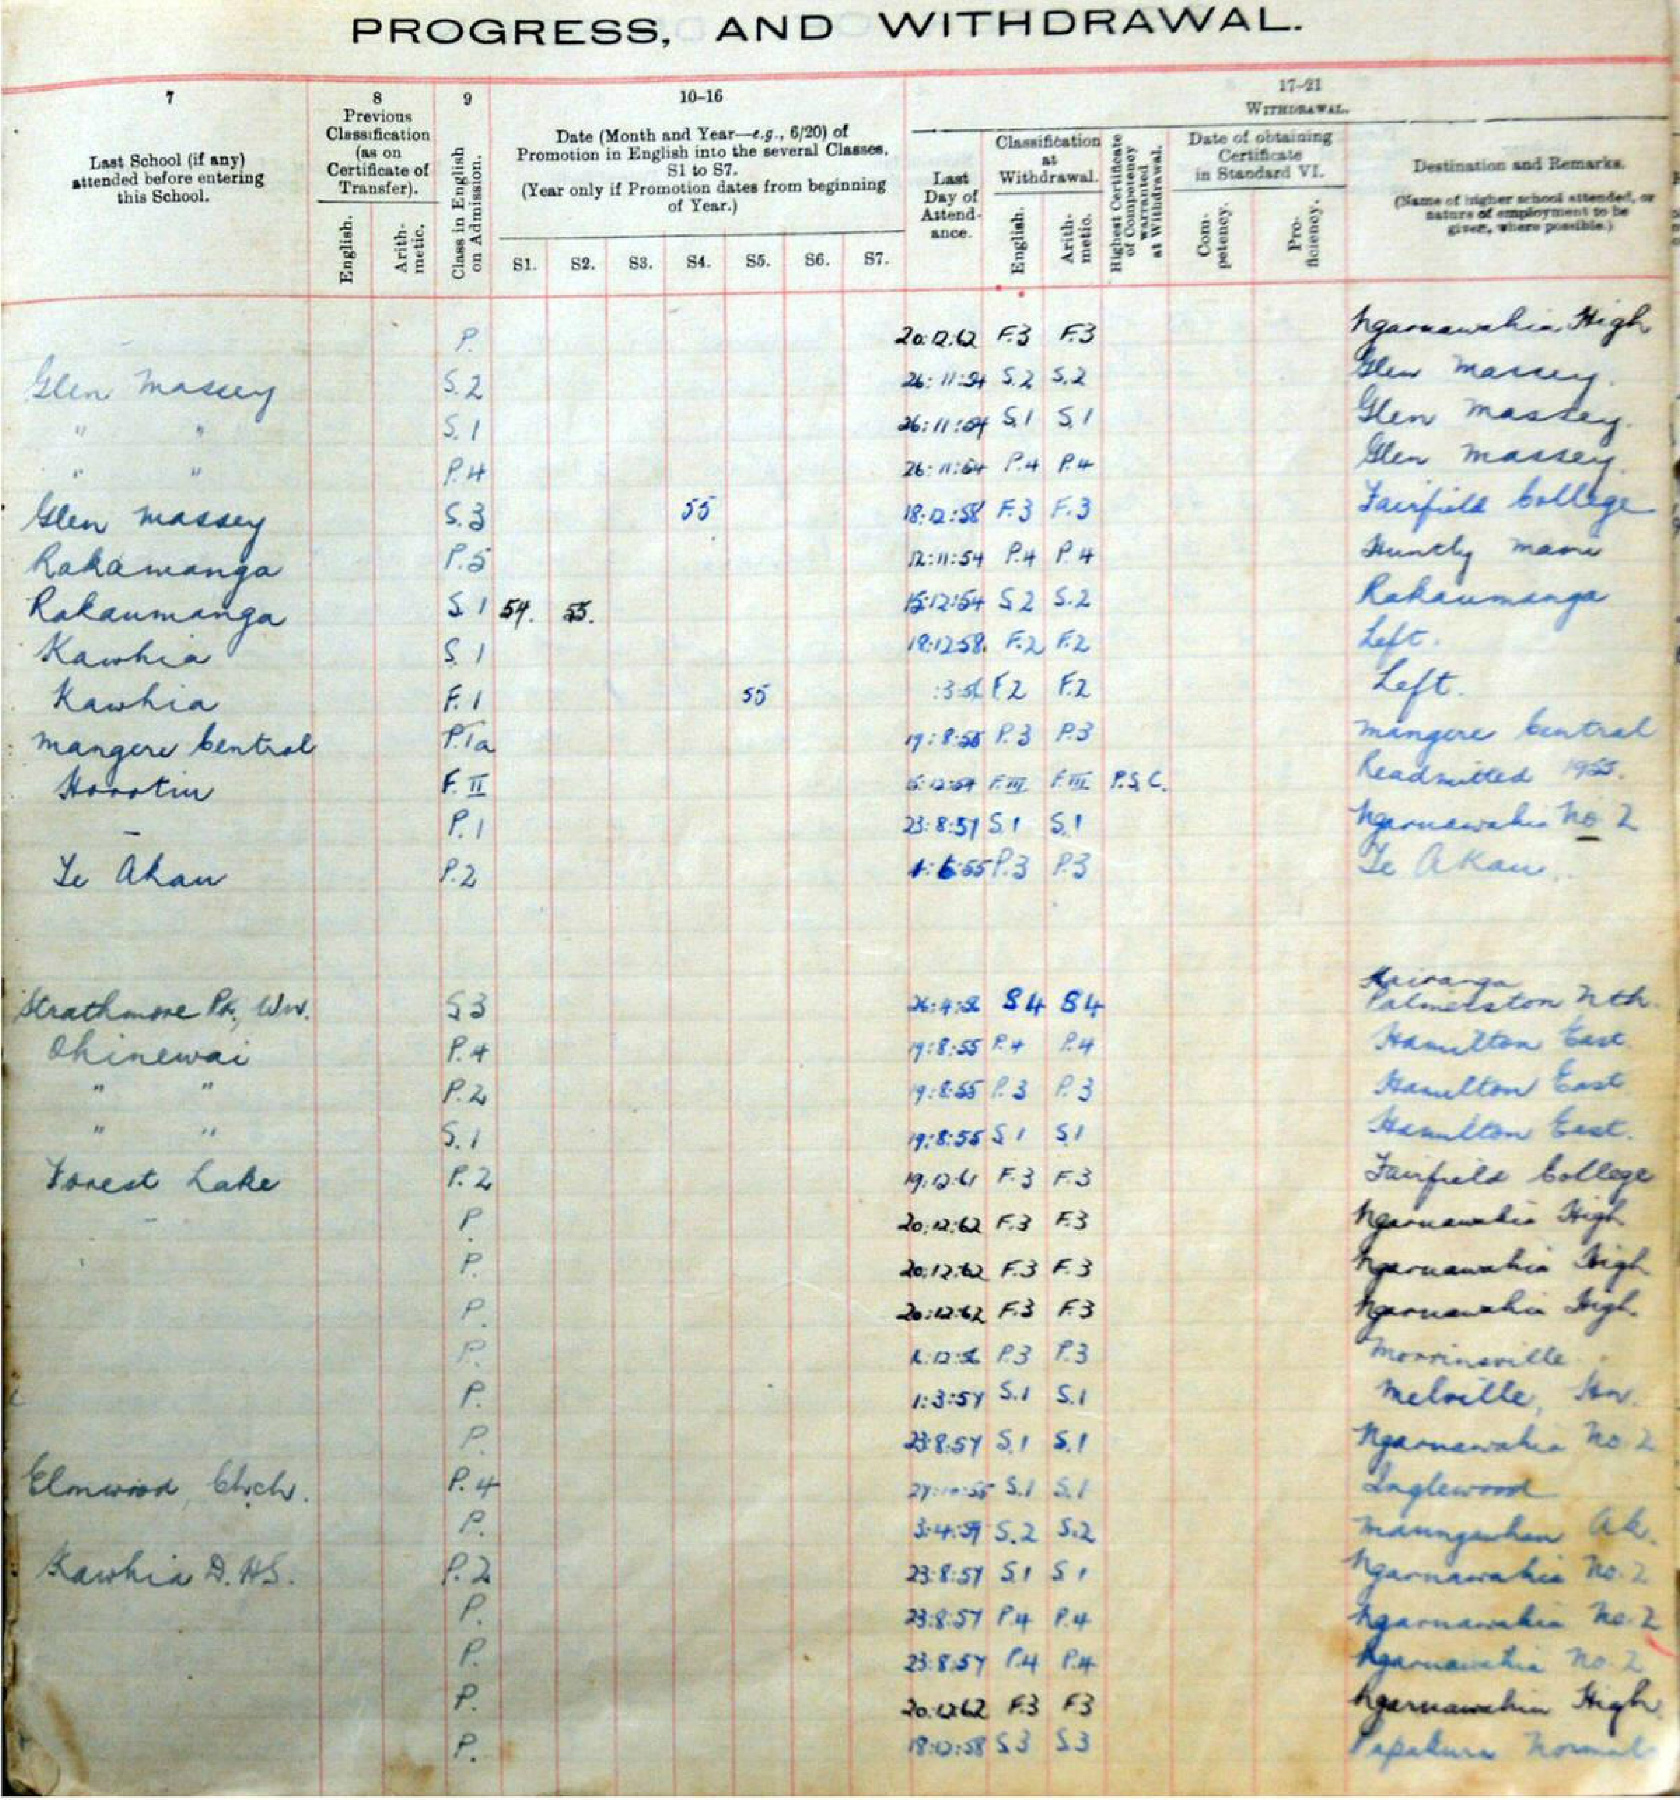 PROGRESS, AND WITHDRAWAL.
7
Last School (if any)
attended before entering
this School.
8
Previous
Classification
(as on
Certificate of
Transfer).
English.
Arith-
metic.
9
Class in English
on Admission.
10–16
Date (Month and Year—e.g., 6/20) of
Promotion in English into the several Classes,
S1 to S7.
(Year only if Promotion dates from beginning
of Year.)
S1. S2. S3. S4. S5. S6. S7.
17–21
WITHDRAWAL.
Last
Day of
Attend-
ance.
Classification
at
Withdrawal.
English.
Arith-
metic.
Highest Certificate
of Competency
warranted
at Withdrawal.
Date of obtaining
Certificate
in Standard VI.
Com-
petency.
Pro-
ficiency.
Destination and Remarks.
(Name of higher school attended, or
nature of employment to be
given, where possible.)
P. 20:12:62 F.3 F.3 Ngaruawahia High
Glen Massey S.2 26:11:54 S.2 S.2 Glen Massey.
" " S.1 26:11:54 S.1 S.1 Glen Massey.
" " P.4 26:11:54 P.4 P.4 Glen Massey.
Glen Massey S.3 55 18:12:58 F.3 F.3 Fairfield College
Rakamanga P.5 12:11:54 P.4 P.4 Huntly Maori
Rakaumanga S.1 54. 55. 15:12:54 S2 S.2 Rakaumanga
Kawhia S.1 18:12:58 F.2 F.2 Left.
Kawhia F.1 55 F.2 F.2 Left.
Mangere Central P.1a 19:8:55 P.3 P.3 Mangere Central
Horotiu F.II F.III F.III P.S.C. Readmitted 1955.
– P.1 23:8:57 S.1 S.1 Ngaruawahia No 2
Te Akau P.2 P.3 P.3 Te Akau
Kairanga
Strathmore Pk, Wn. S3 S4 S4 Palmerston Nth.
Ohinewai P.4 19:8:55 P.4 P.4 Hamilton East
" " P.2 19:8:55 P.3 P.3 Hamilton East
" " S.1 19:8:55 S1 S.1 Hamilton East.
Forest Lake P.2 19:12:61 F.3 F.3 Fairfield College
P. 20:12:62 F.3 F.3 Ngaruawahia High
P. 20:12:62 F.3 F.3 Ngaruawahia High
P. 20:12:62 F.3 F.3 Ngaruawahia High.
P. P.3 P.3 Morrinsville
P. 1:3:57 S.1 S.1 Melville, Hn.
P. 23:8:57 S.1 S.1 Ngaruawahia No. 2
Elmwood, Chch. P.4 S.1 S.1 Inglewood
P. 3:4:59 S.2 S.2 Maungawhau Ak.
Kawhia D.H.S. P.2 23:8:57 S.1 S1 Ngaruawahia No. 2
P. 23:8:57 P.4 P.4 Ngaruawahia No. 2
P. 23:8:57 P.4 P.4 Ngaruawahia No. 2
P. 20:12:62 F.3 F.3 Ngaruawahia High
P. 18:12:58 S3 S.3 Papakura Normal